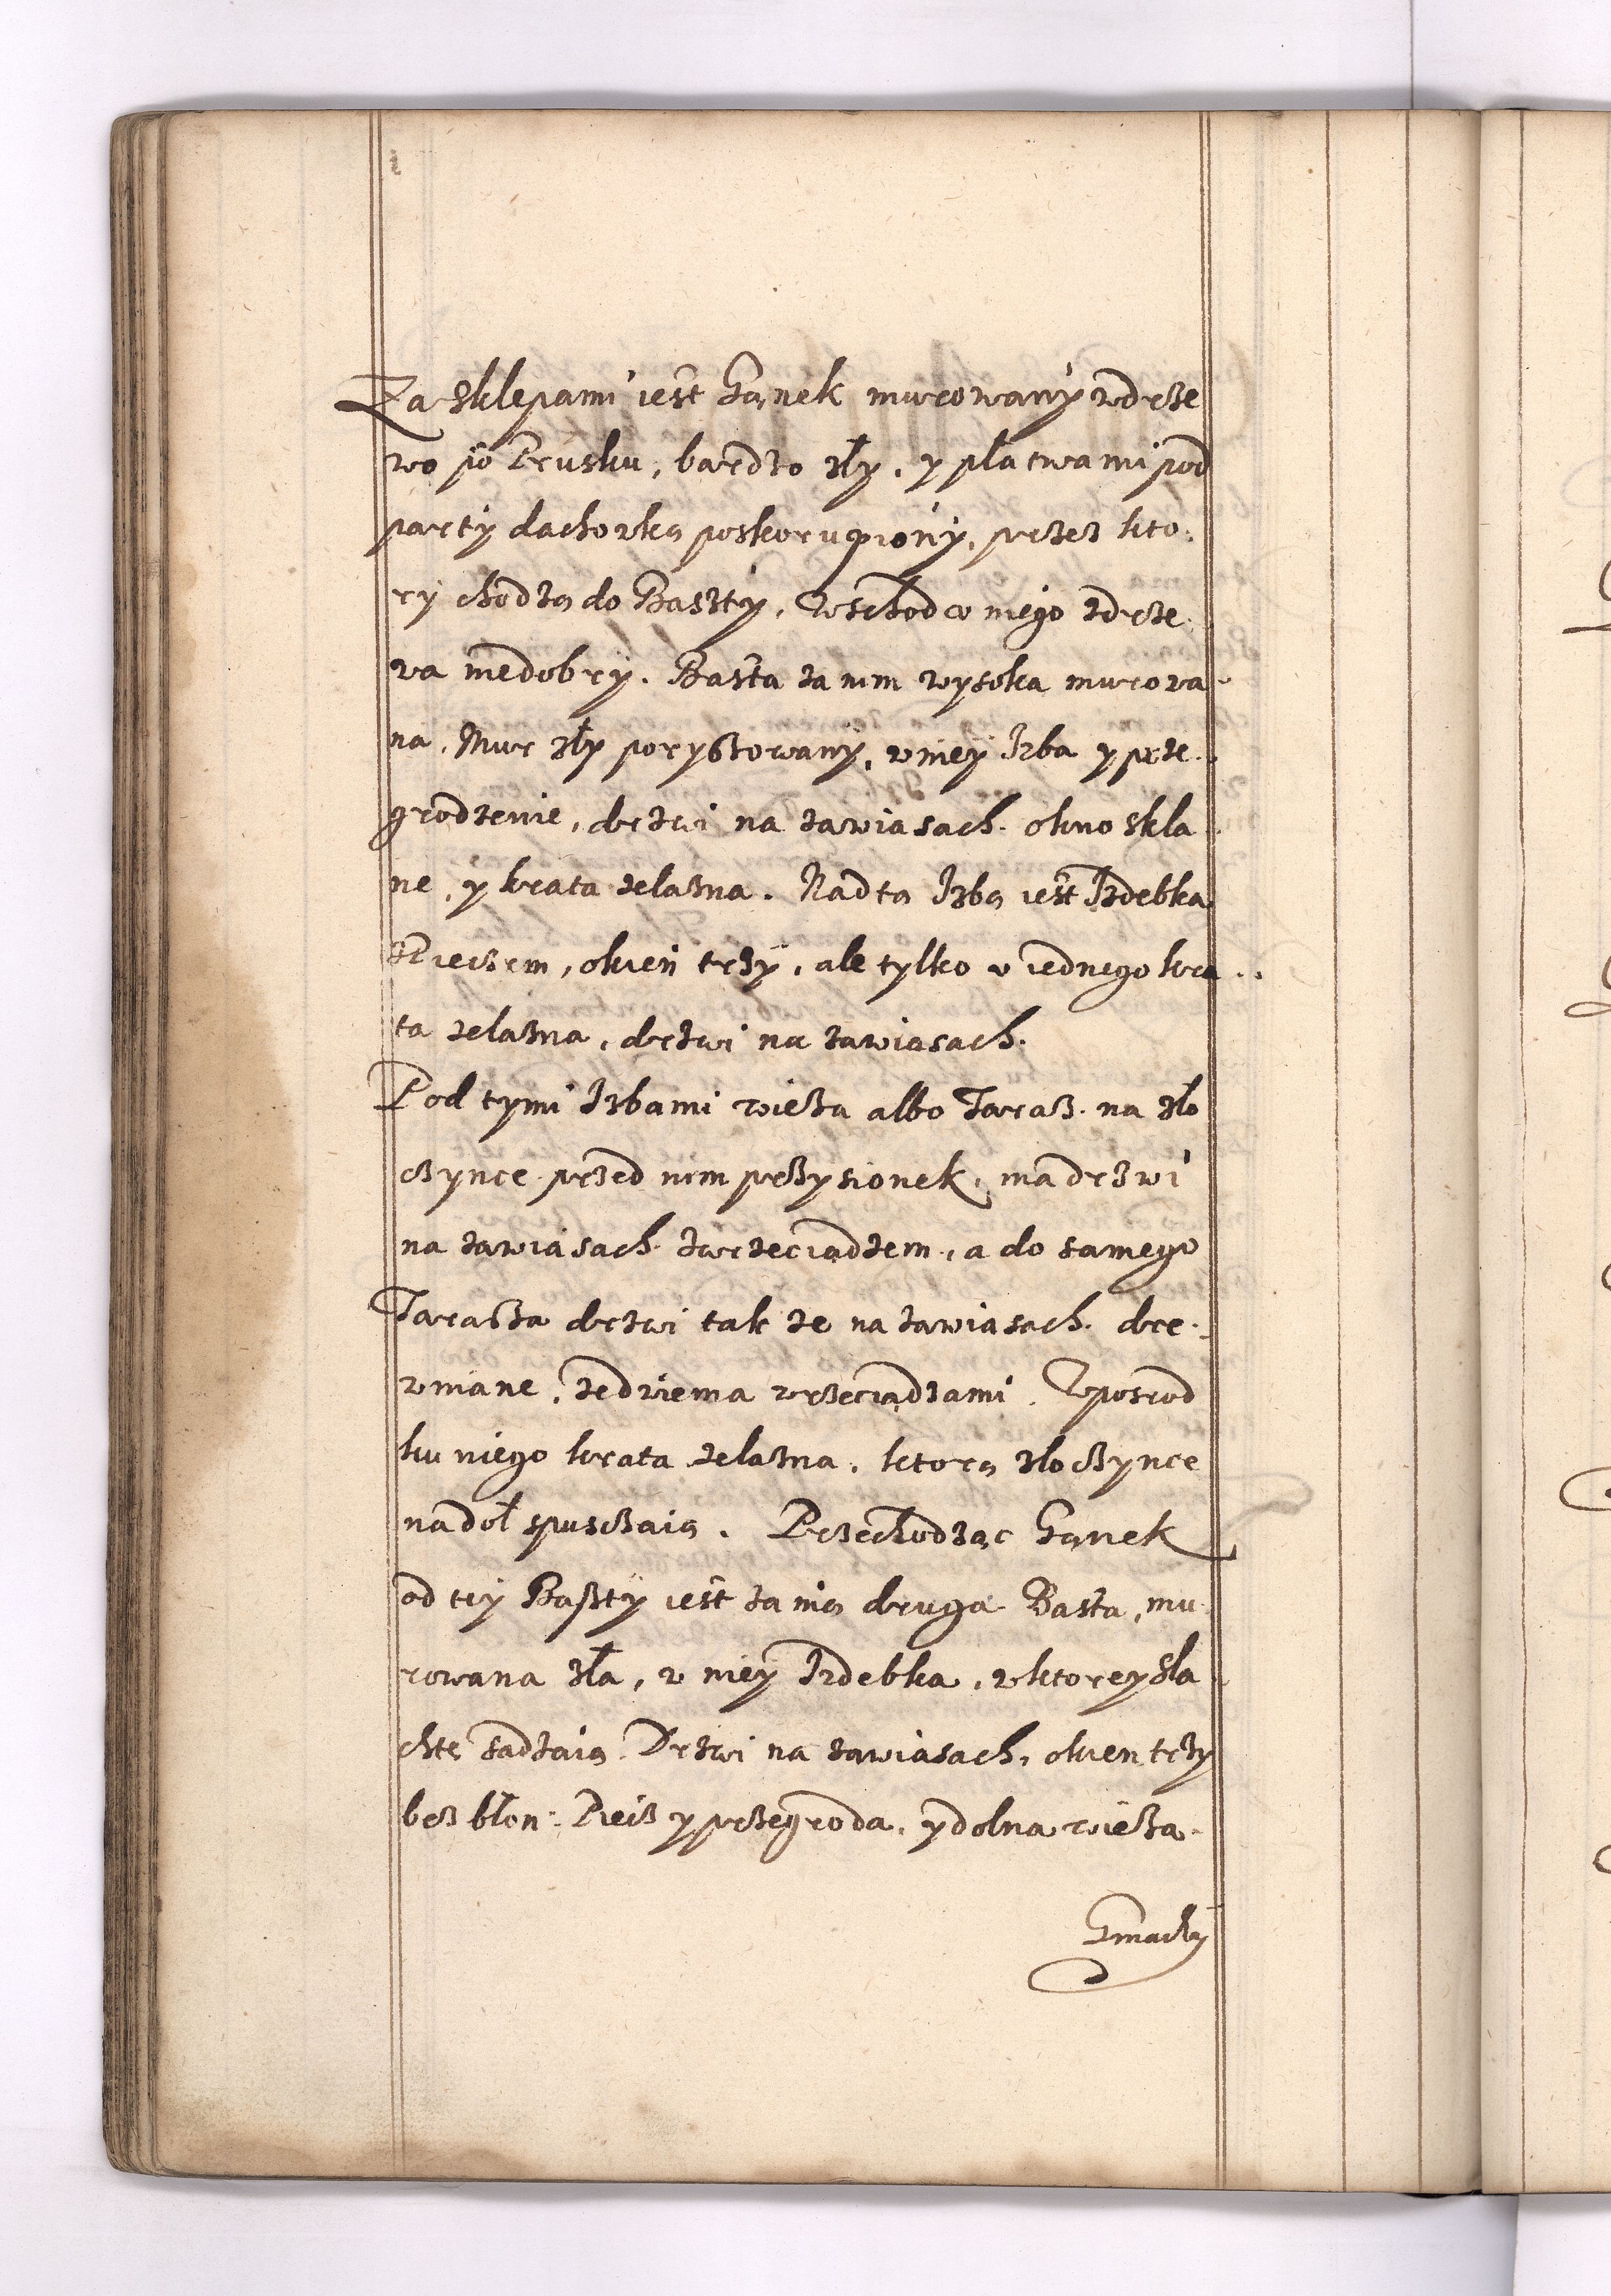 Za sklepami iest Ganek murowany wdrze
wo po Prusku, bardzo zły, y płatwami pod
party dachowką poskorupiony, przez kto:
ry chodzą do Baszty, Wschod w niego zdrze
wa niedobry. Baszta za nim wysoka murowa
na, Mur zły porysowany, w niey Izba y prze
grodzenie, drzwi na zawiasach. okno skla
ne, y krata żelazna. Nad tą Izbą iest Izdebka
z Piecem, okien trzy, ale tylko v iednego kra
ta żelazna, drzwi na zawiasach.
Pod tymi Izbami wieża albo Taras. na zło
czynce przed nim przysionek, ma drzwi
na zawiasach zwrzeciądzem, a do samego
Tarasza drzwi tak że na zawiasach. dre:
wniane, zedwiema wrzeciądzami. Wposrod
ku niego krata żelazna, ktorą złoczynce
nadoł spuszczaią. Przechodząc Ganek
od tey Baszty iest za nią druga Baszta, mu
rowana zła, w niey Izdebka, w ktorey szla
chtę sadzaią. Drzwi na zawiasach, okien trzy
bez błon: Piec y przegroda, y dolna wieża.
Gmachy